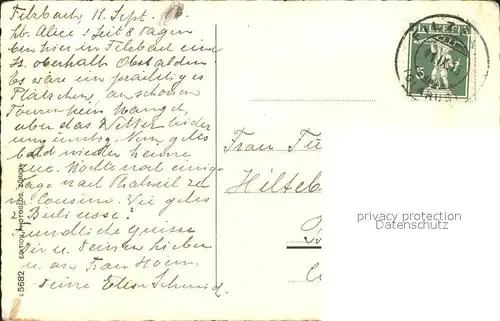 Filzbach, 11. Sept.
Lb. Alice! Seit 8 Tagen
bin hier in Filzbach eine
St. oberhalb Obstalden.
Es wäre ein prächtiges
Plätzchen, an schönen
Touren kein Mangel,
aber das Wetter leider
ungünstig. Nun gehts
bald wieder heime
zue. Möchte noch einige
Tage nach Thalwil zu
m. Cousine. Wie gehts
z' Büli usse?
Freundliche Grüsse
Dir u. Deinen Lieben
u. an Frau Horn.
Deine Elise Schmid.
Frau
Hilteb
5
5682 EDITION PHOTOGLOB, ZÜRICH
privacy protection
Datenschutz